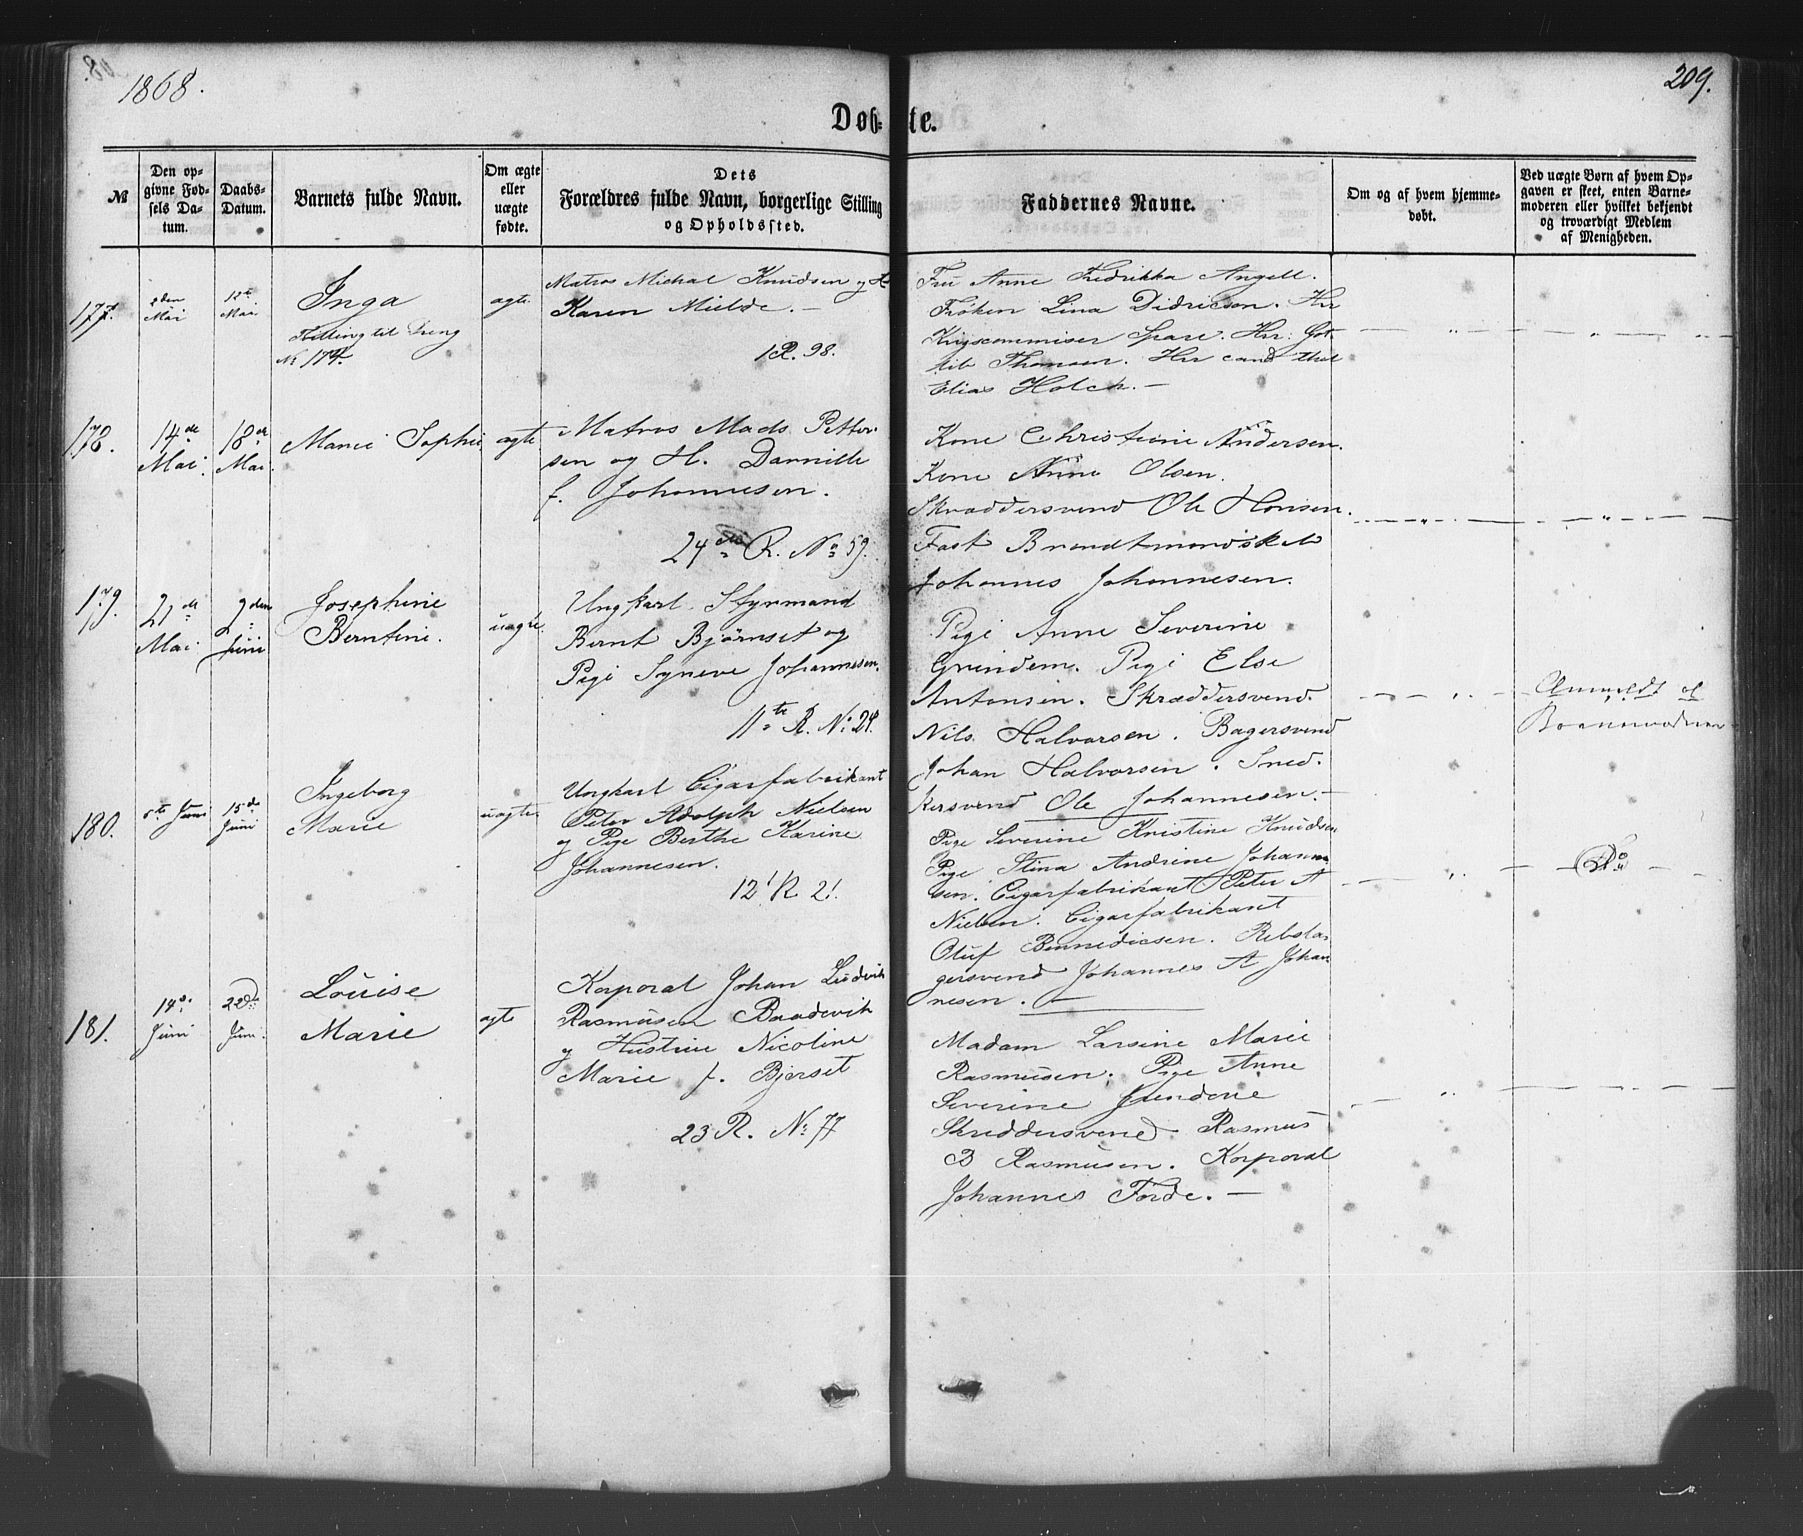 1868.
209.
Døb=te.
№
Den opgivne Fødsels Datum.
Daabs-Datum.
Barnets fulde Navn.
Om ægte eller uægte fødte.
Dets Forældres fulde Navn, borgerlige Stilling og Opholdssted.
Faddernes Navne.
Om og af hvem hjemmedøbt.
Ved uægte Børn af hvem Opgaven er skeet, enten Barnemoderen eller hvilket bekjendt og troværdigt Medlem af Menigheden.
177.
Mai
12te Mai
Inga
Tvilling til Dreng
No 174.
ægte
Matros Michal Knudsen og H
Karen Mielde. —
1 R. 98.
Fru Anne Fredrikka Angell.
Frøken Lina Didricson. Hr
Krigscommiser Spare. Hr. Got-
lib Thomsen. Hr cand theol
Elias Holck. —
178.
14de Mai.
18de Mai.
Marie Sophie
ægte
Matros Mads Petter-
sen og H. Dannille
f. Johannesen.
24de R. No 59.
Kone Christine Andersen.
Kone Anne Olsen.
Skræddersvend Ole Hansen.
Fast Brandtmandskab
Johannes Johannesen.
179.
21de Mai
2den Juni
Josephine
Berntine.
uægte.
Ungkarl Styrmand
Bernt Bjørnset og
Pige Syneve Johannesen.
11te R. No 24.
Pige Anne Severine
Grindem. Pige Else
Antonsen. Skræddersvend
Nils Halvorsen. Bagersvend
Johan Halvorsen. Sned-
kersvend Ole Johannesen. —
Anmeldt af
Barnemoderen
180.
5te Juni
15de Juni
Ingeborg
Marie
uægte.
Ungkarl Cigarfabrikant
Peter Adolph Nielsen
og Pige Berthe Karine
Johannesen.
12! R 2!
Pige Severine Kristine Knudsen
Pige Stina Andrine Johanne
sen. Cigarfabrikant Peter A
Nielsen. Cigarfabrikant
Oluf Bennedicsen. Rebsla-
gersvend Johannes A Johan
nesen. —
Do
181.
14de Juni
22de Juni.
Louise
Marie
ægte
Korporal Johan Ludvik
Rasmusen Baadevik
og Hustrue Nicoline
Marie f. Bjerset
23 R. No 77
Madam Larsine Marie
Rasmusen. Pige Anne
Severine
Skreddersvend Rasmus
B Rasmusen. Korporal
Johannes Førde. —